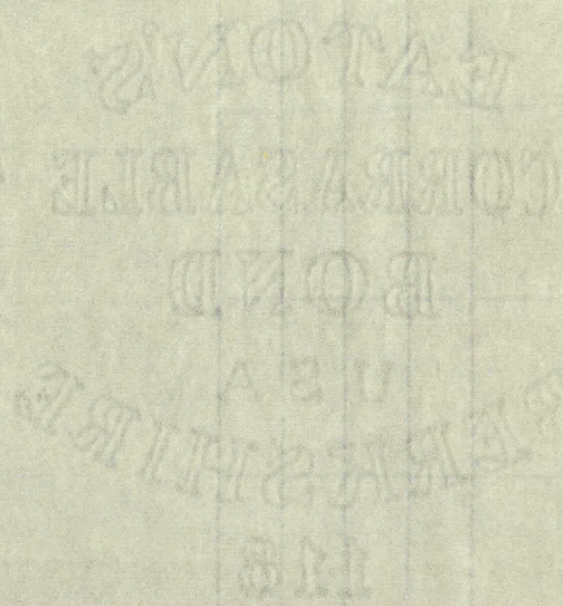 EATON'S
CORRASABLE
BOND
USA
BERKSHIRE